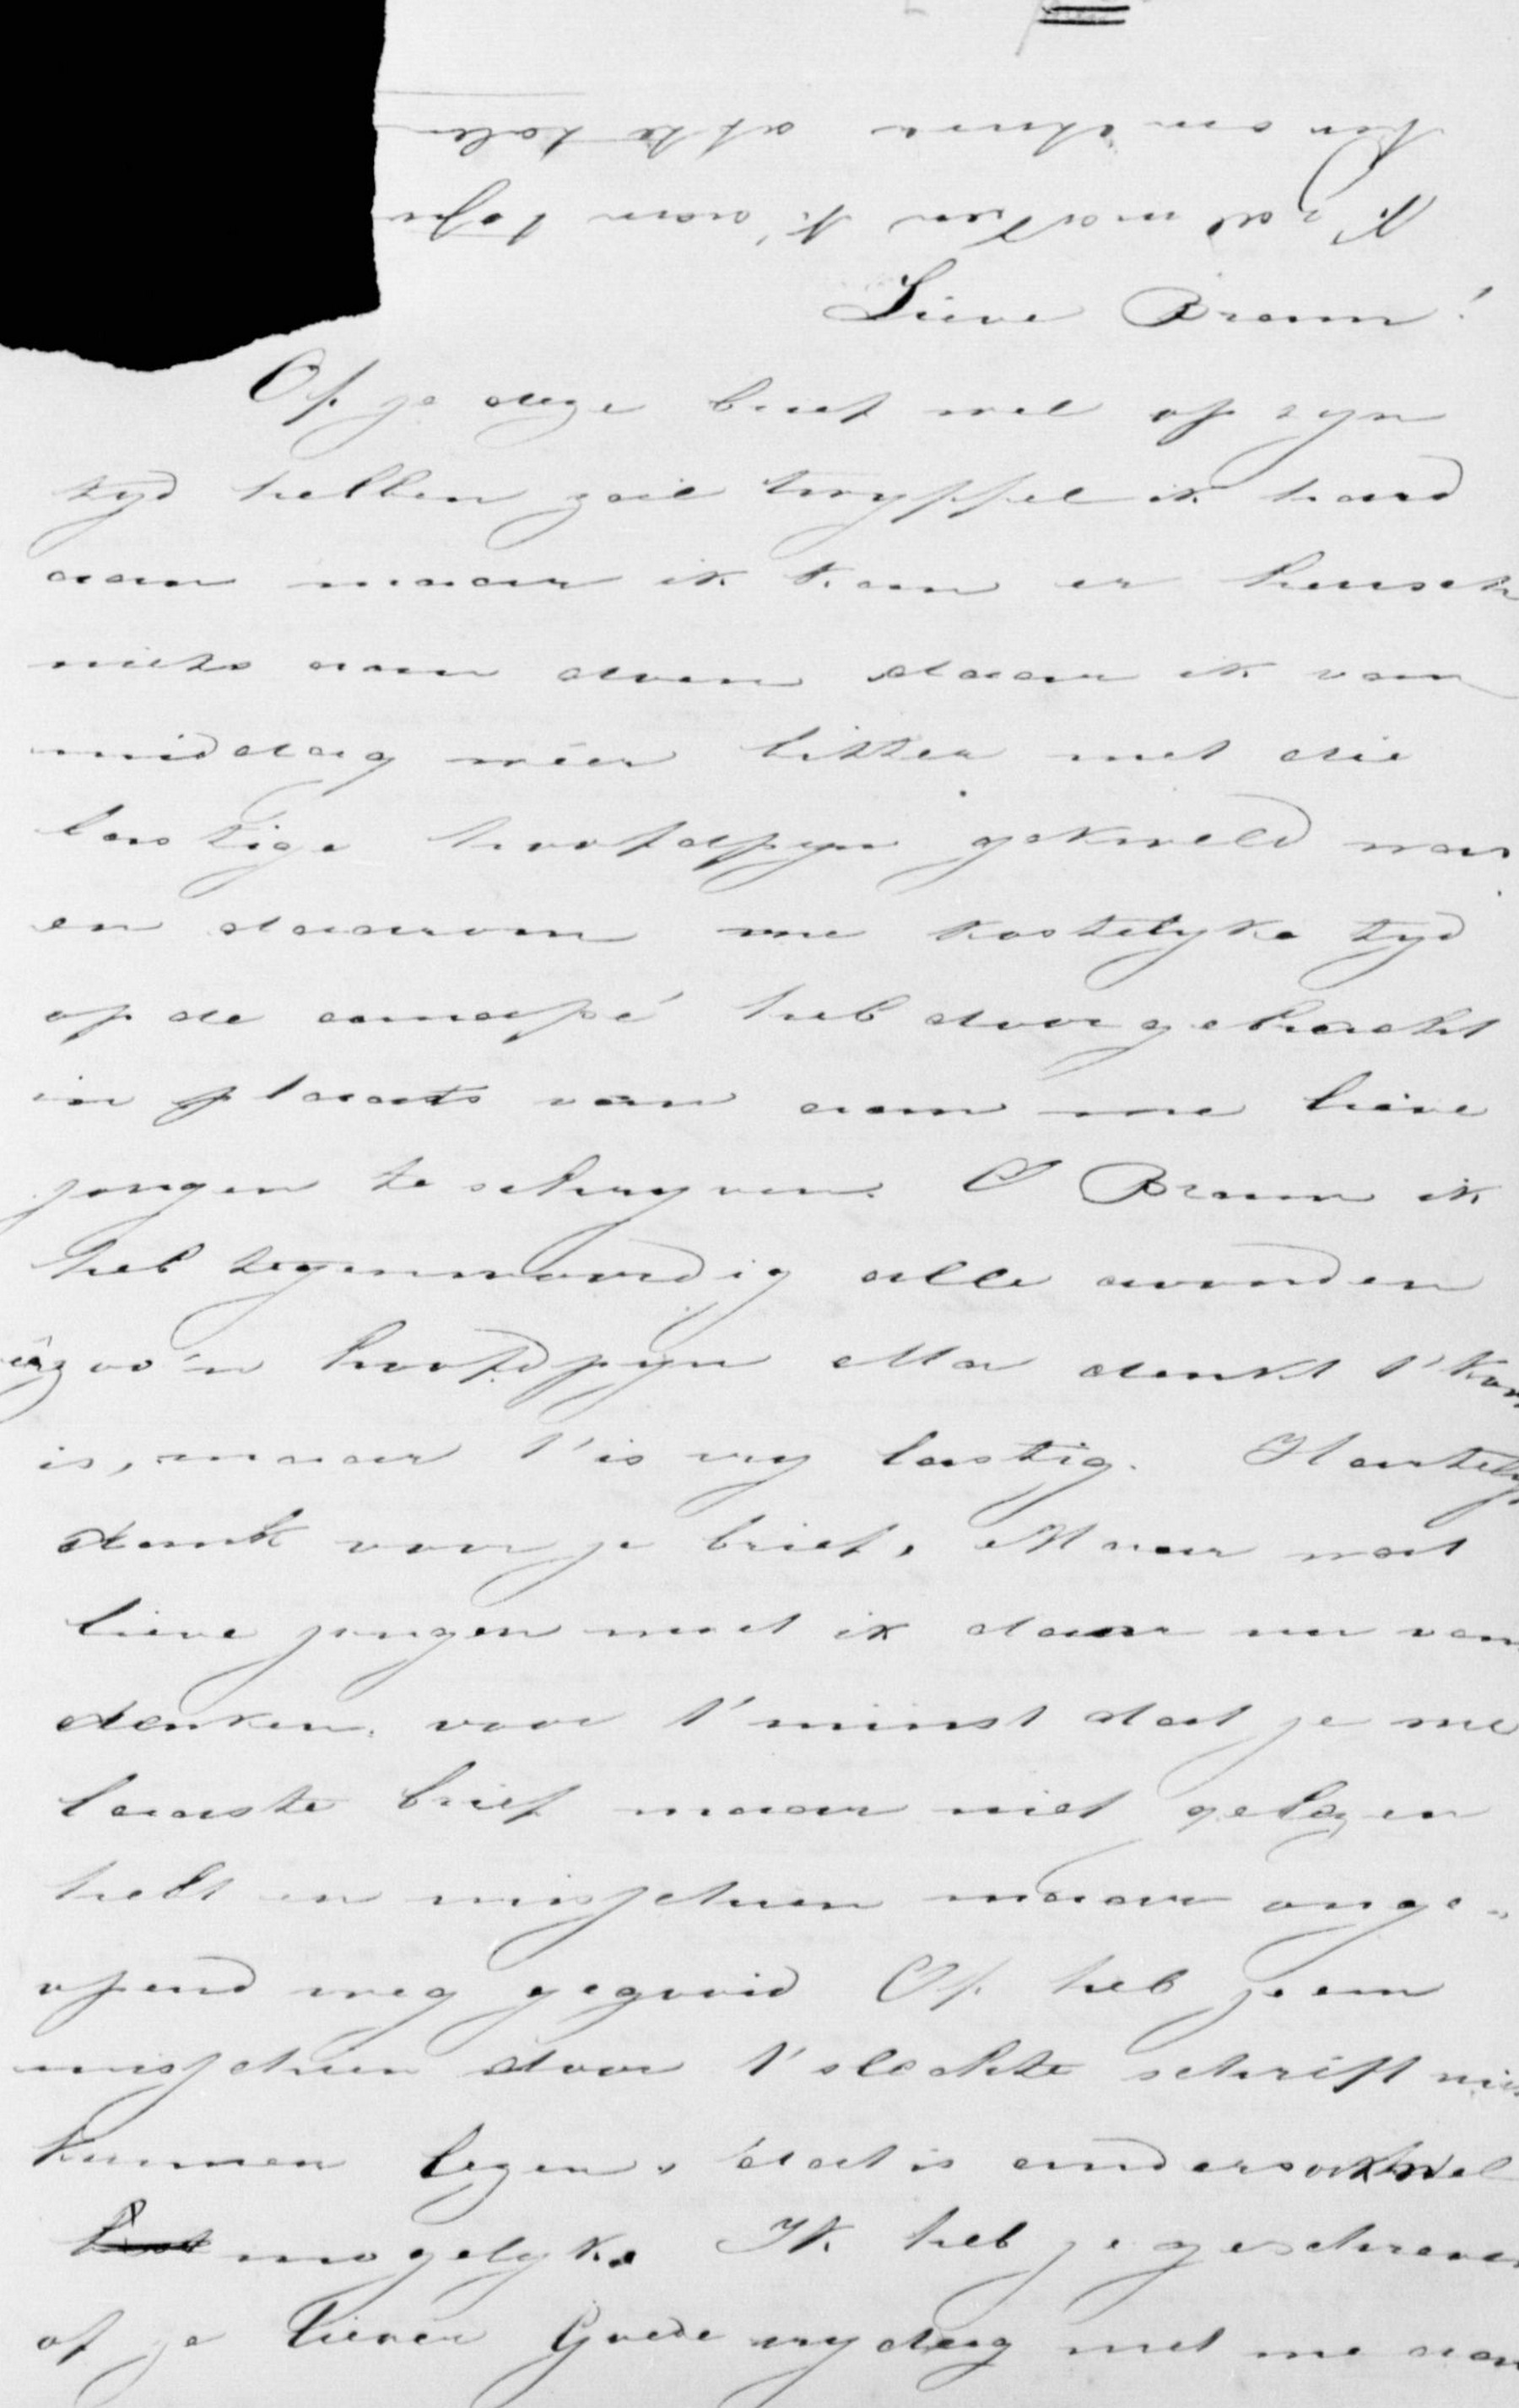 Ik zal maken k' aan tafel
ben om thuis af te halen
Lieve Bram!
Of je deze brief wel op zyn
tyd hebben zail twyffel ik hard
aan maar ik kan er heusch
niets aan doen daar ik van
middag wéér bitter met die
lastige hoofdpyn gekweld was
en daarom me kostelyke tyd
op de canapé heb doorgebracht
in plaats van aan me lieve
jongen te schryven. O Bram ik
heb tegenwoordig alle avonden
zoo'n hoofdpyn Ma denkt t'
is, maar t' is vry lastig. Hartelyk
dank voor je brief. Maar wat
lieve jongen moet ik daar nu van
denken. voor t' minst dat je me
laaste brief maar niet gelezen
hebt en misschien maar onge=
opend weg gegooid Of heb je em
misschien door t' slechte schrift niet
kunnen lezen, dat is anders ook wel
mogelyk. Ik heb je geschreven
of je liever Goede vrydag met me aan